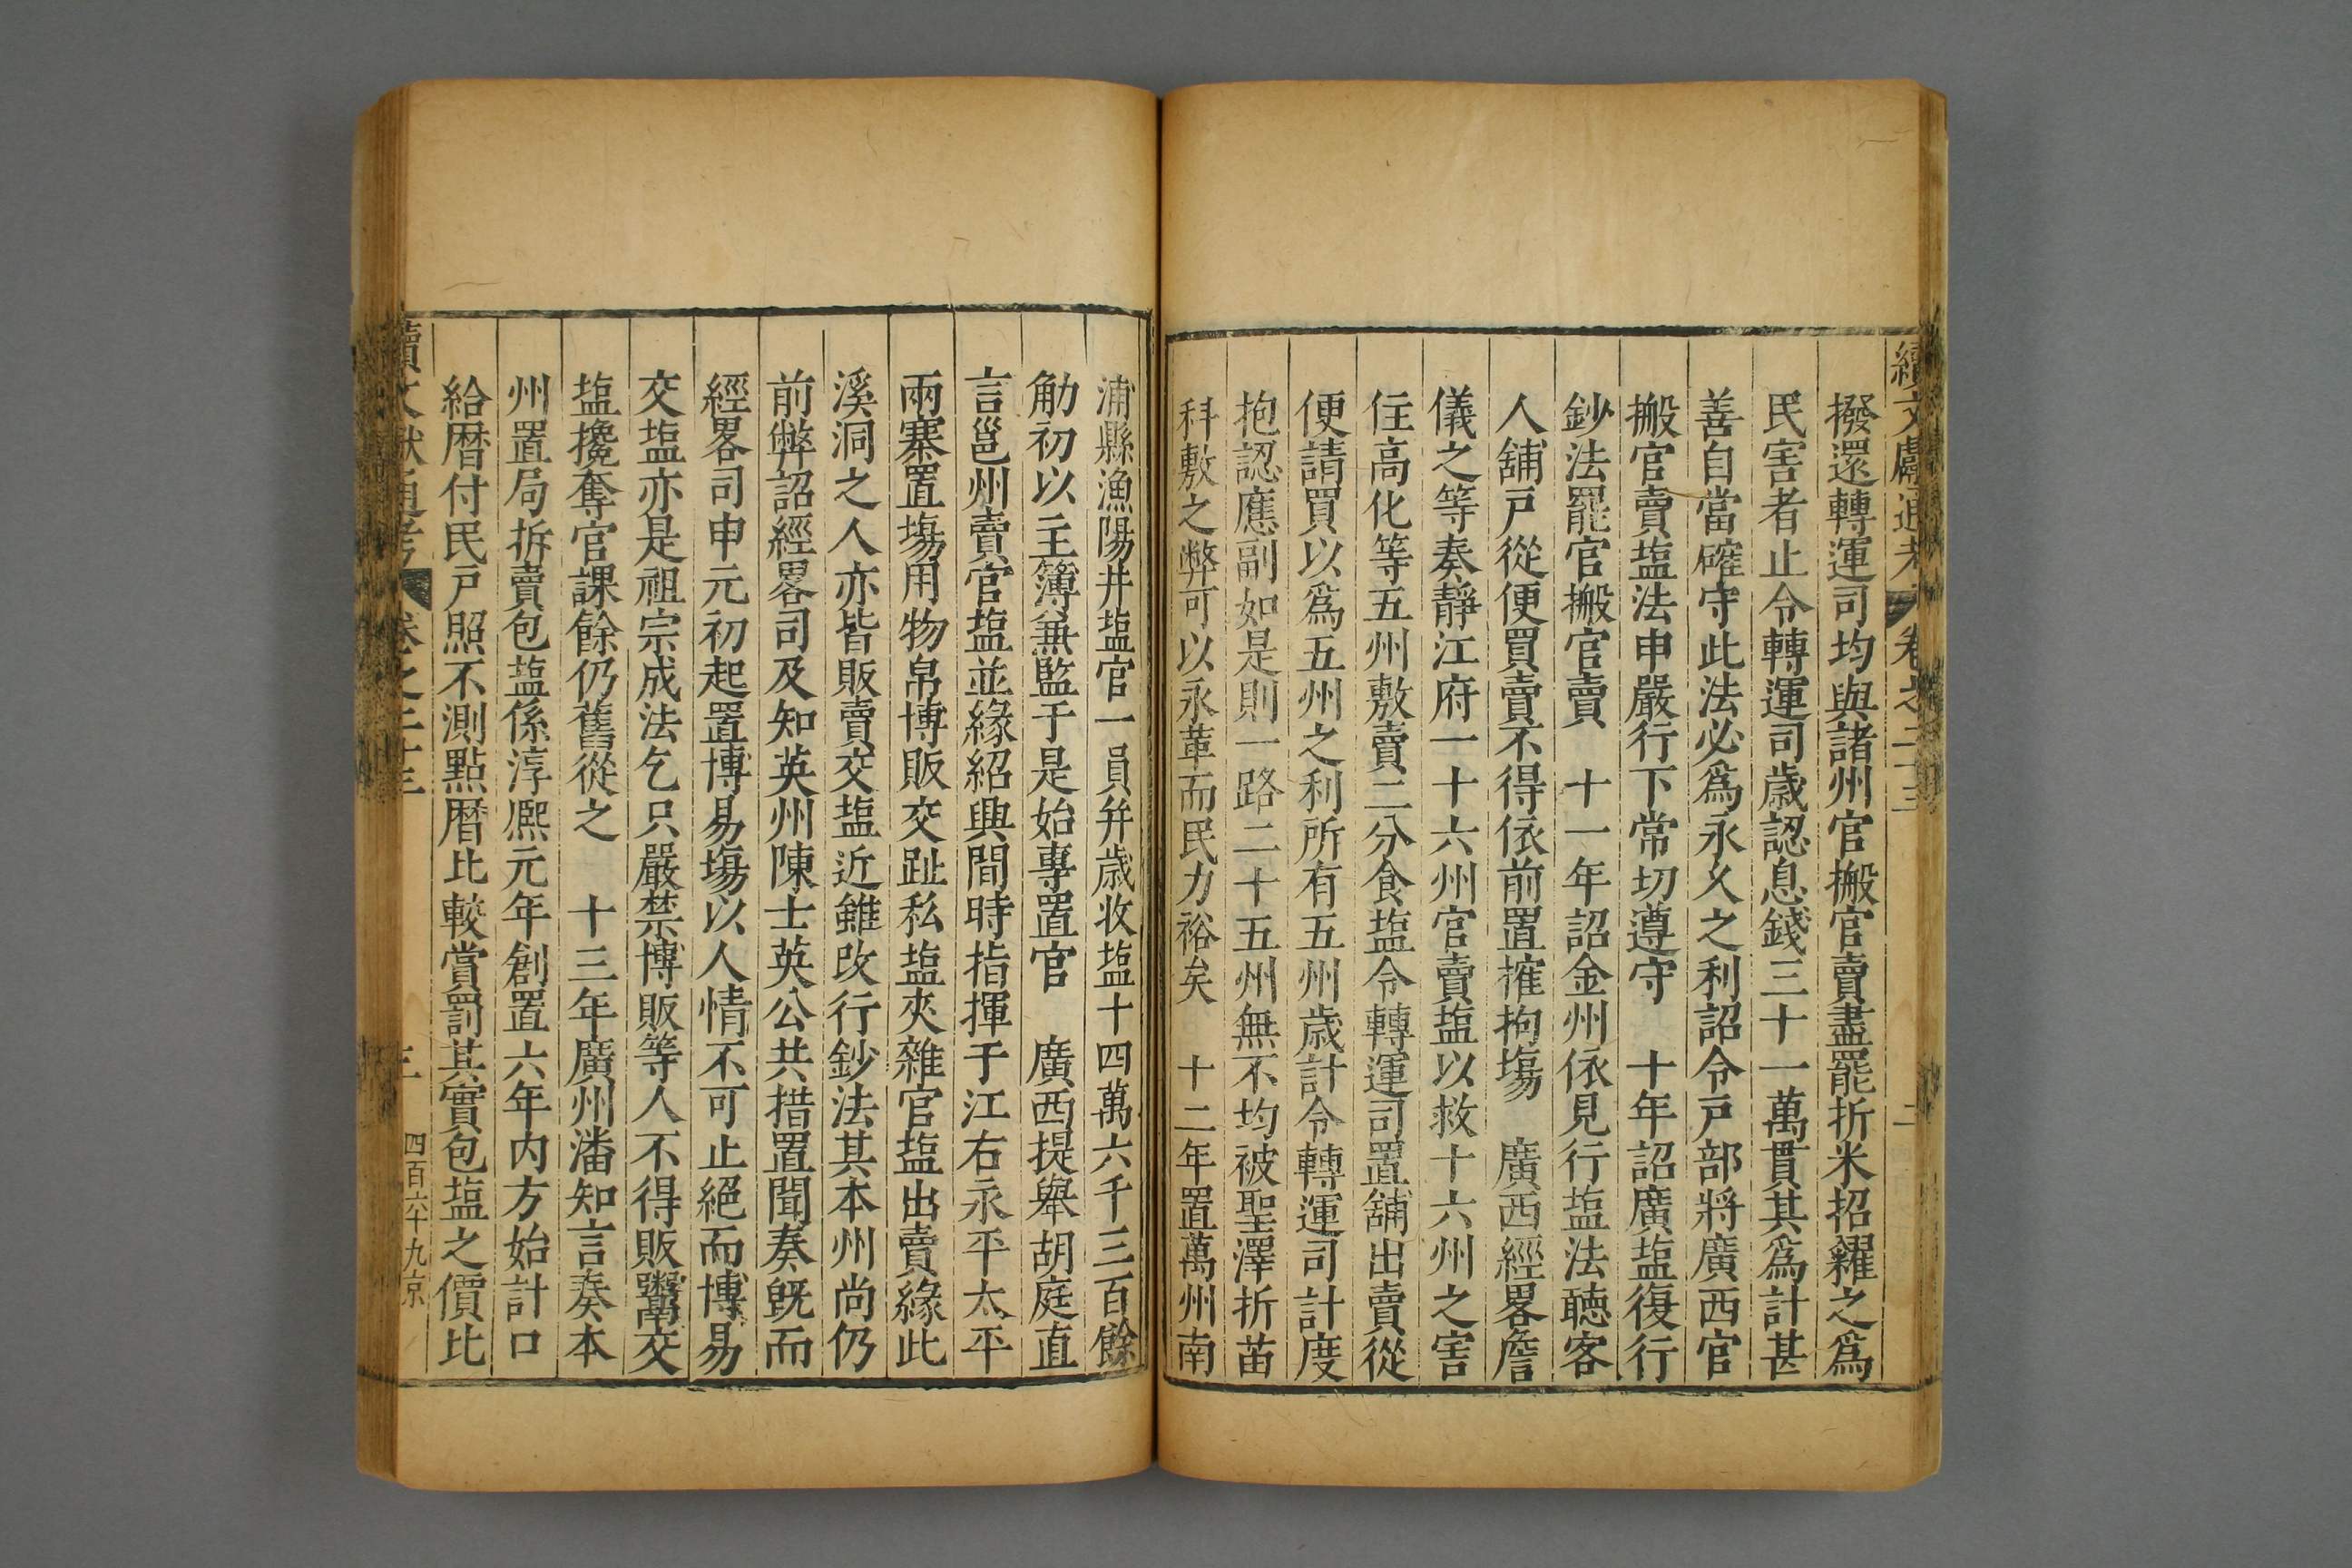 續文獻通考 卷之二十三 二
撥還轉運司均與諸州官搬官賣盡罷折米招糴之爲
民害者止令轉運司歳認息錢三十一萬貫其爲計甚
善自當確守此法必爲永久之利詔令戸部將廣西官
搬官賣塩法申嚴行下常切遵守　十年詔廣塩復行
鈔法罷官搬官賣　十一年詔金州依見行塩法聽客
人舖戸從便買賣不得依前置搉拘塲　廣西經畧詹
儀之等奏靜江府一十六州官賣塩以救十六州之害
住高化等五州敷賣二分食塩令轉運司置舖出賣從
便請買以爲五州之利所有五州歳計令轉運司計度
抱認應副如是則一路二十五州無不均被聖澤折苗
科敷之弊可以永革而民力裕矣　十二年置萬州南
浦縣漁陽井塩官一員幷歳收塩十四萬六千三百餘
觔初以主簿兼監于是始專置官　廣西提舉胡庭直
言邕州賣官塩並緣紹興間時指揮于江右永平太平
兩寨置塲用物帛博販交趾私塩夾雜官塩出賣緣此
溪洞之人亦皆販賣交塩近雖改行鈔法其本州尚仍
前弊詔經畧司及知英州陳士英公共措置聞奏旣而
經畧司申元初起置博易塲以人情不可止絕而博易
交塩亦是祖宗成法乞只嚴禁博販等人不得販鬻交
塩攙奪官課餘仍舊從之　十三年廣州潘知言奏本
州置局拆賣包塩係淳熈元年創置六年内方始計口
給曆付民戸照不測點曆比較賞罰其實包塩之價比
續文獻通考 卷之二十三 三 四百六十九京